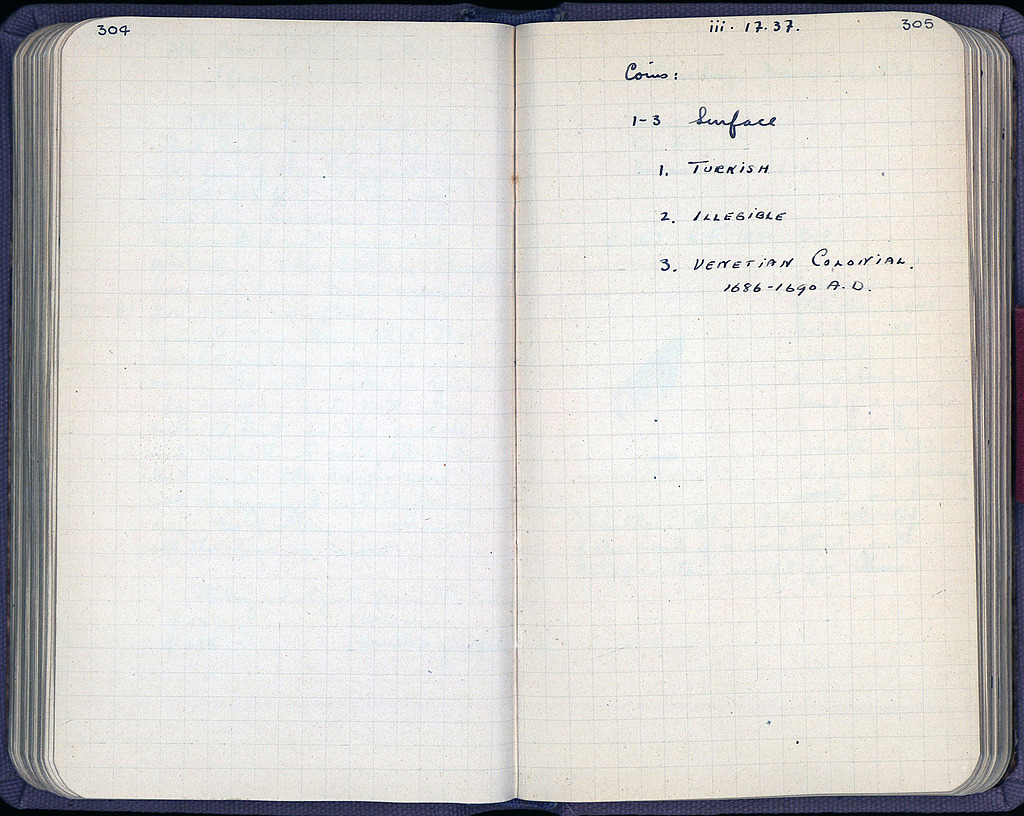 304
iii. 17.37.
305
Coins:
1-3 Surface
1. TURKISH
2. ILLEGIBLE
3. VENETIAN COLONIAL.
1686-1690 A.D.